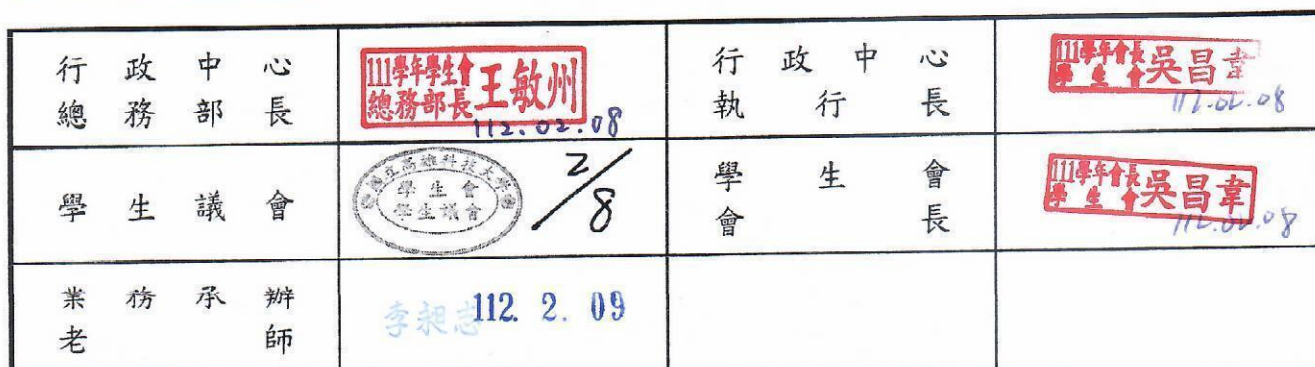 行政中心
總務部長
111學年學生會
總務部長
王敏州
112.02.08
行政中心
執行長
111學年會長
學生會
吳昌韋
112.02.08
學生議會
國立高雄科技大學
學生會
學生議會
2/8
學生會
會長
111學年會長
學生會
吳昌韋
112.02.08
業務承辦
老師
李昶志
112. 2. 09